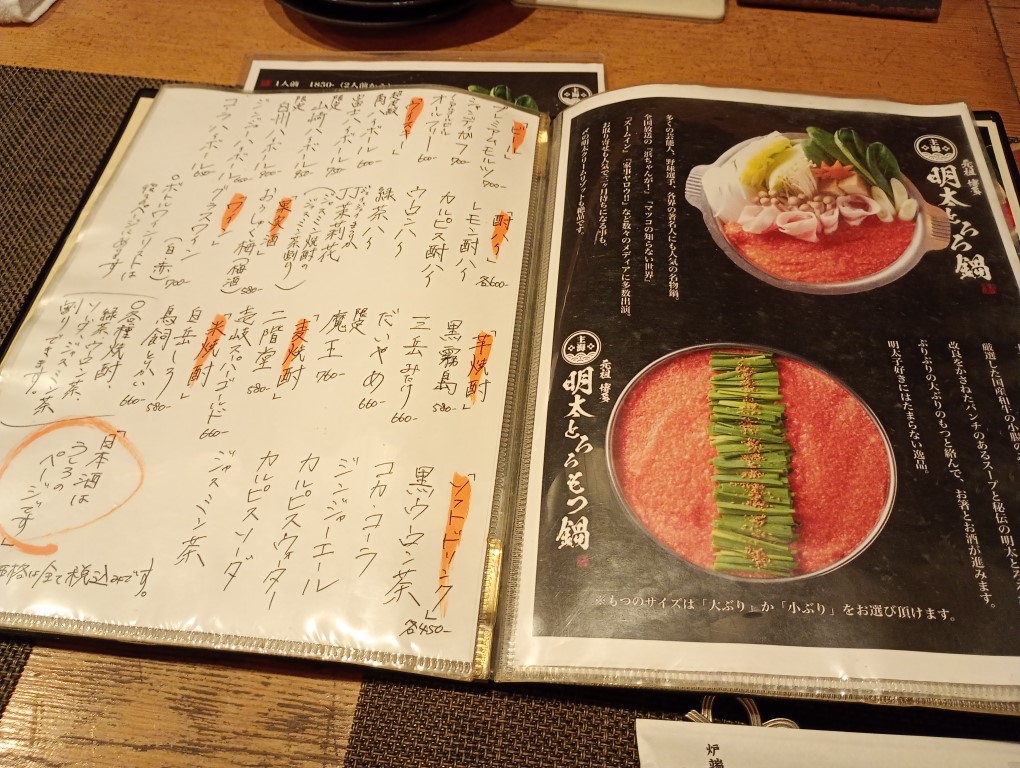 1人前 1850-
「ビール」
プレミアムモルツ
700-
オールフリー
600-
「ウイスキー」
角ハイボール
富士ハイボール
山崎ハイボール
白州ハイボール
ジンジャーハイボール
コーラハイボール
「酎ハイ」
レモン酎ハイ
各600-
カルピス酎ハイ
ウーロンハイ
緑茶ハイ
JJ茉莉花
(ジャスミン焼酎の
ジャスミン茶割り)
「果実酒」
おいしく梅(梅酒)
580-
「ワイン」
グラスワイン
(白・赤)
700-
○ボトルワインリストは
「芋焼酎」
黒霧島
580-
三岳みたけ
660-
だいやめ
660-
限定
魔王
760-
「麦焼酎」
二階堂
580-
壱岐スーパーゴールド
660-
「米焼酎」
白岳しろ
580-
鳥飼とりかい
660-
○各種焼酎
緑茶・ウーロン茶
ソーダ・ジャスミン茶
割りできます。
「ソフトドリンク」
各450-
黒ウーロン茶
コカ・コーラ
ジンジャーエール
カルピスウォーター
カルピスソーダ
ジャスミン茶
「日本酒は
うしろの
ページです」
価格は全て税込みです。
元祖 博多
明太とろろ鍋
多くの芸能人、野球選手、各界の著名人にも人気の名物鍋。
全国放送の「浜ちゃんが!」「マツコの知らない世界」
「ズームイン」「家事ヤロウ!!」など数々のメディアに多数出演。
お取り寄せも人気で三ヶ月待ちになる事も。
〆の明太クリームリゾットも絶品です。
元祖 博多
明太とろろもつ鍋
厳選した国産和牛の小腸のみ
改良をかさねたパンチのあるスープと秘伝の明太とろろ
ぷりぷりの大ぶりのもつと絡んで、お箸とお酒が進みます。
明太子好きにはたまらない逸品。
※もつのサイズは「大ぶり」か「小ぶり」をお選び頂けます。
炉端